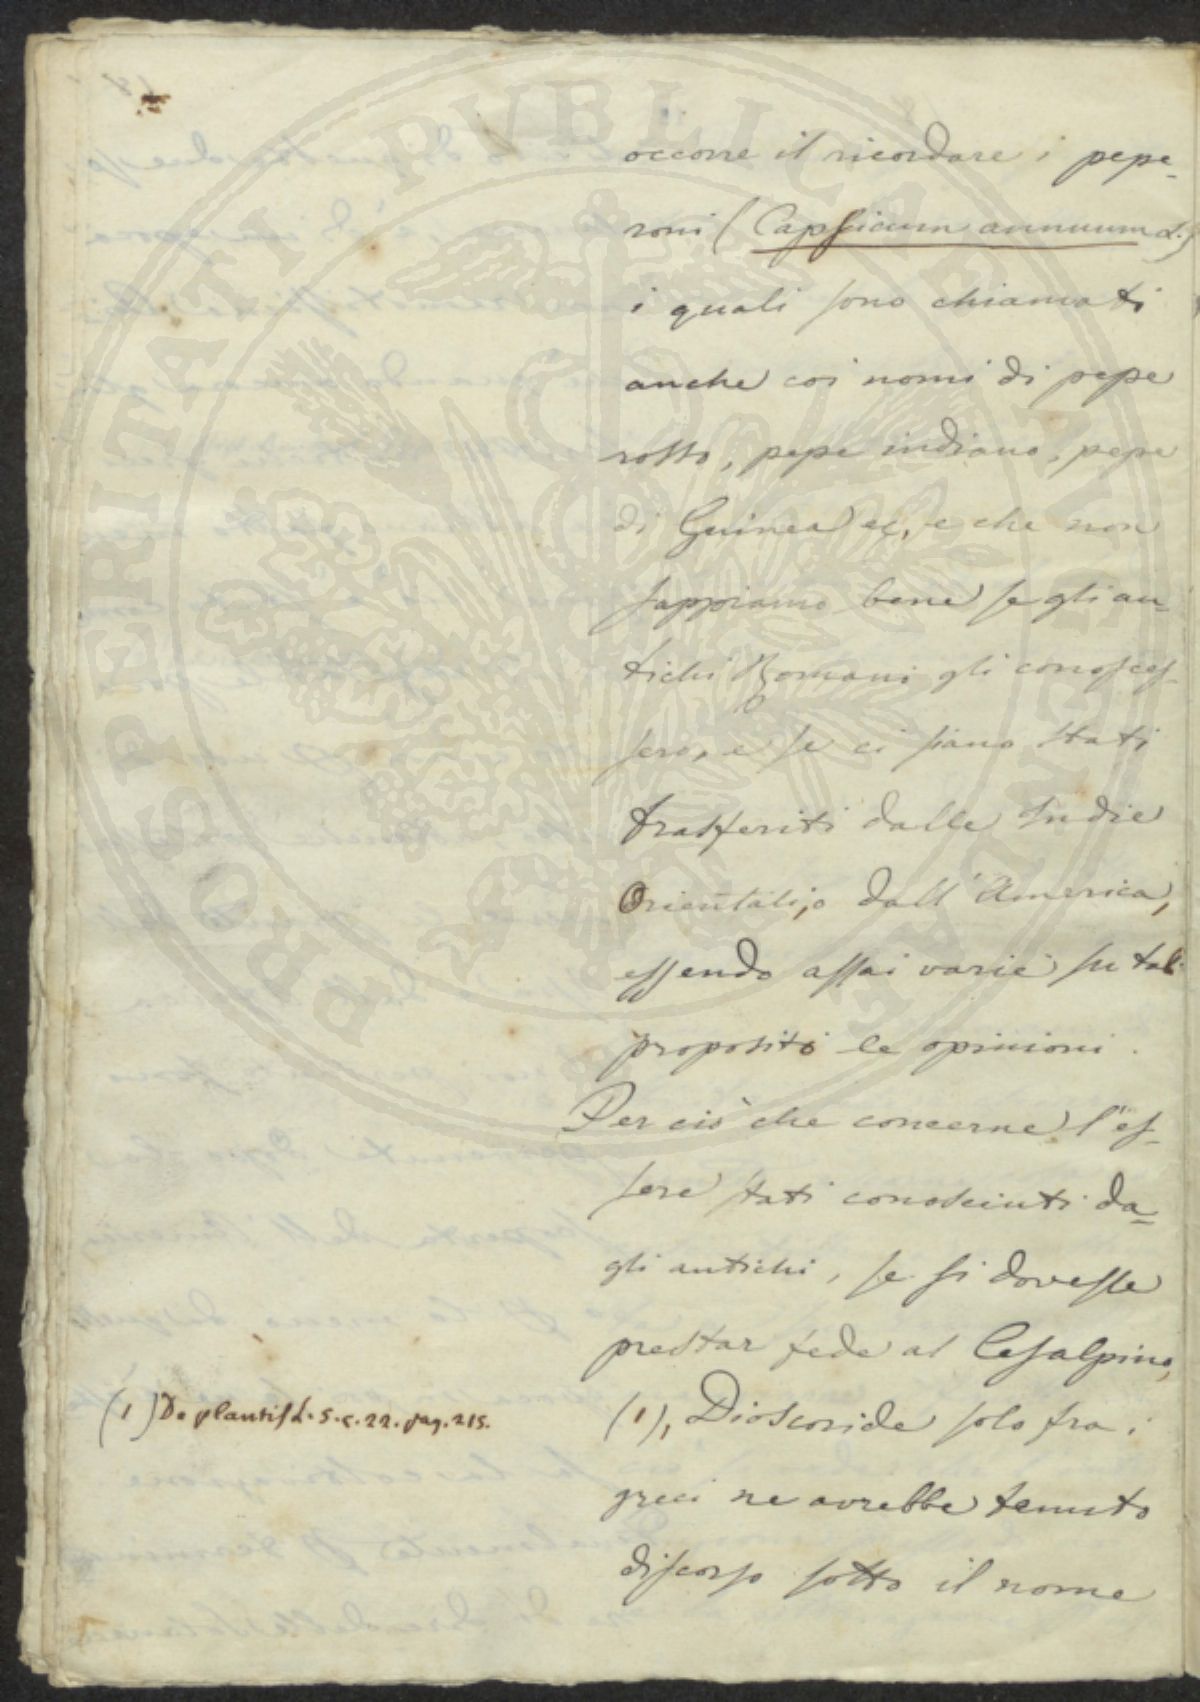 occorre il ricordare i pepe-
roni (Capsicum annuum L.)
i quali sono chiamati
anche coi nomi di pepe
rosso, pepe indiano, pepe
di Guinea ec, e che non
sappiamo bene se gli an-
tichi Romani gli conosces-
sero, e se ci siano stati
trasferiti dalle Indie
Orientali, o dall'America,
essendo assai varie su tal
proposito le opinioni.
Per ciò che concerne l'es-
sere stati conosciuti da-
gli antichi, se si dovesse
prestar fede al Cesalpino,
(1), Dioscoride solo fra i
greci ne avrebbe tenuto
discorso sotto il nome
(1) De plantis L. 5. c. 22. pag. 215.
PROSPERITATI PVBLICAE AVGENDAE